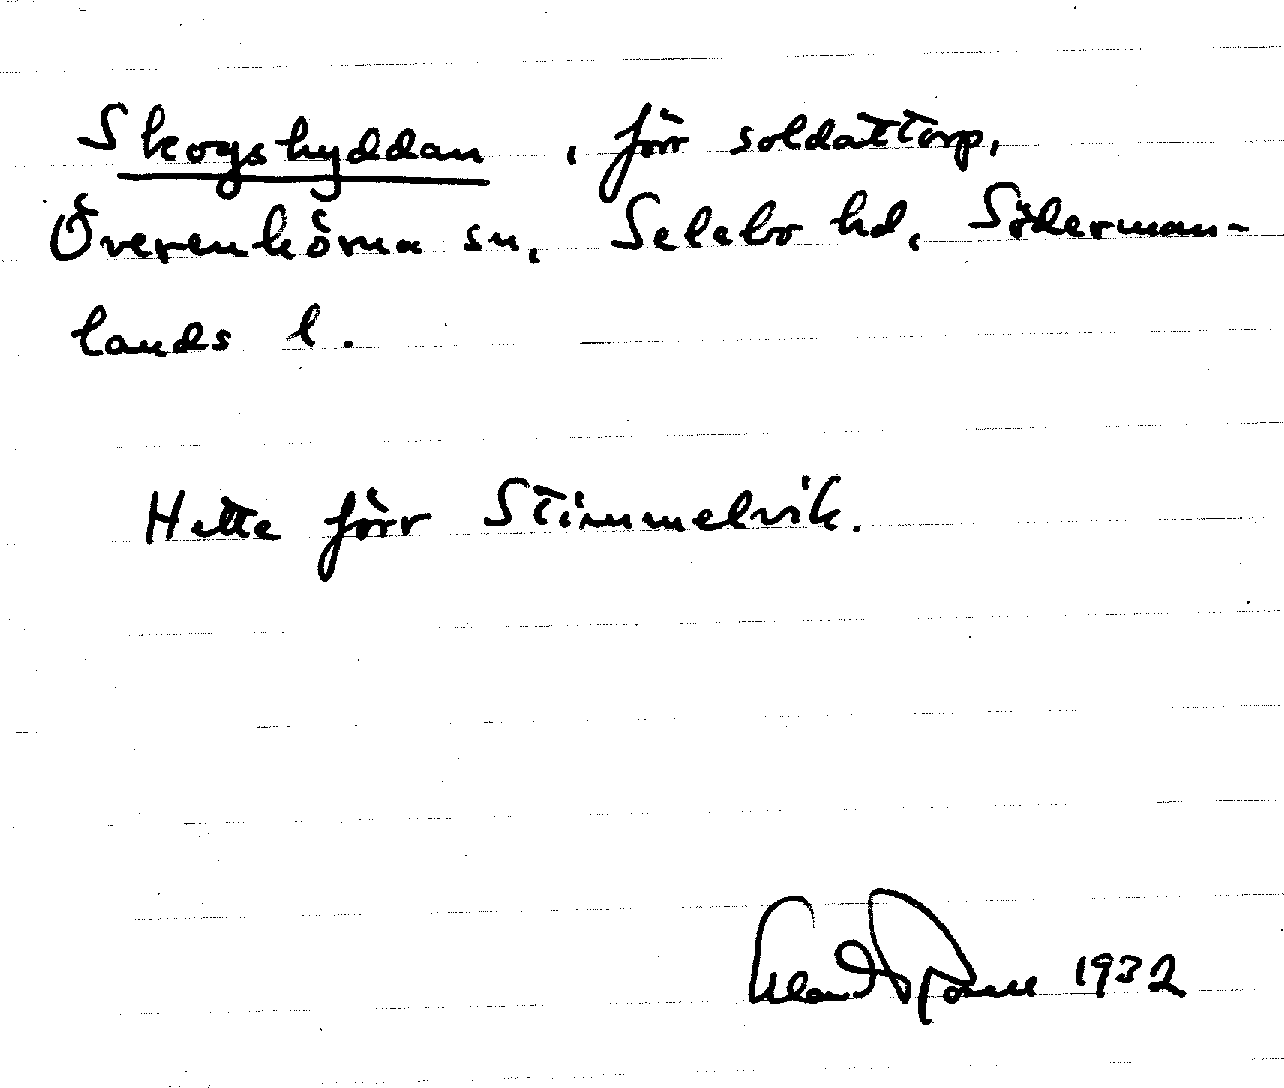 Skogshyddan, förr soldattorp,
Överenhörna sn, Selebo hd, Söderman-
lands l.
Hette förr Stimmelvik.
1932